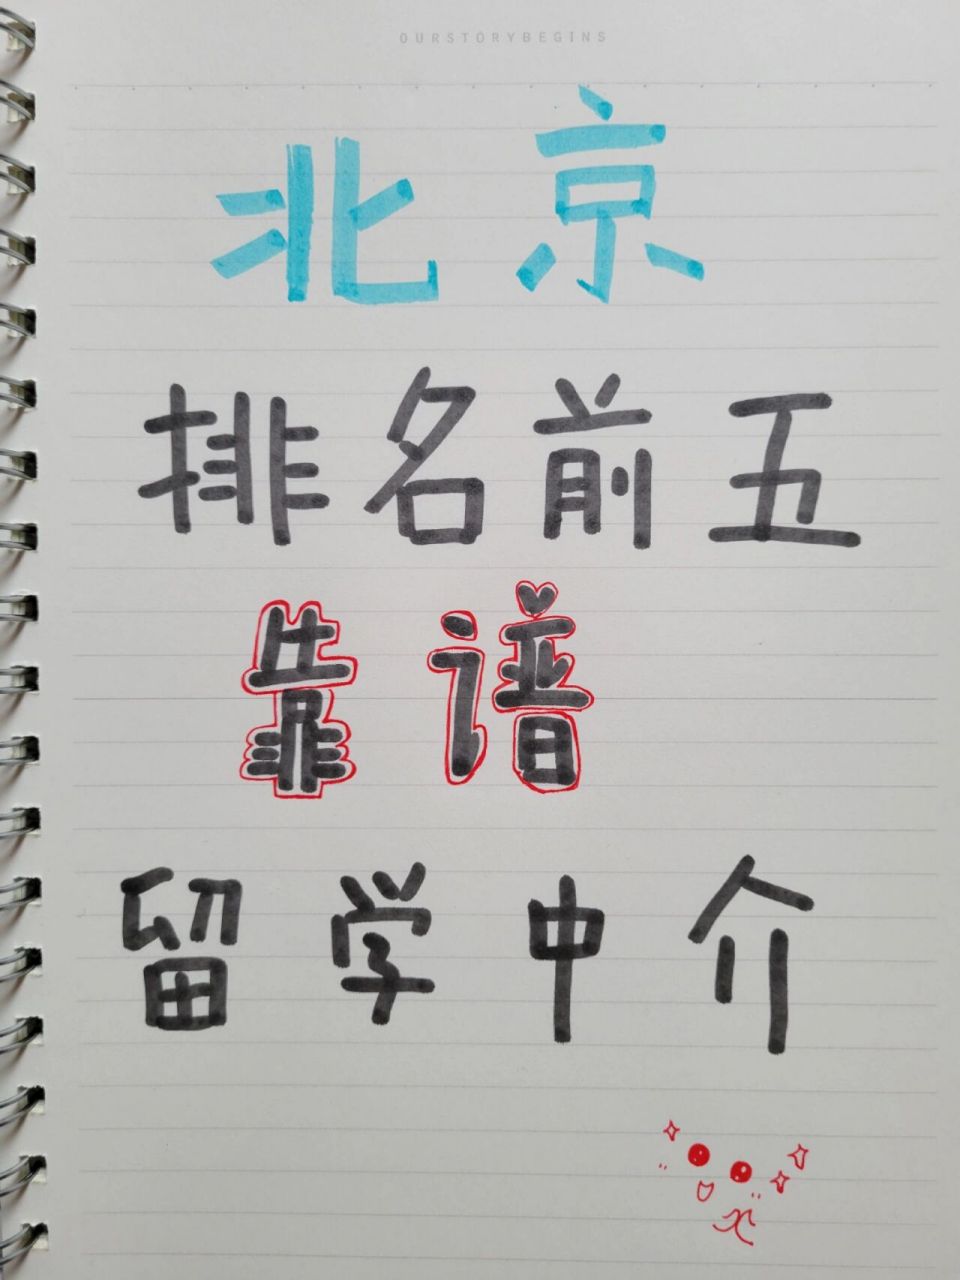 OURSTORYBEGINS
北京
排名前五
靠谱
留学中介